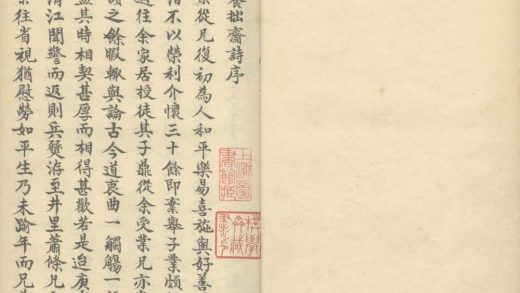 拙齋詩序
從兄復初為人和平樂易喜施與好善
不以榮利介懷三十餘即棄舉子業頗
往余家居授徒其子鼎從余受業兄亦
讀之餘暇輒與論古今道衷曲一觴一
其時相契甚厚而相得甚歡若是迨庚
清江聞警而返則兵燹洊至井里蕭條兄
往省視猶慰勞如平生乃未踰年而兄
上海圖
書館藏